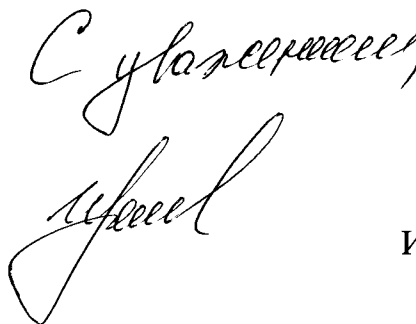 С уважением,
И